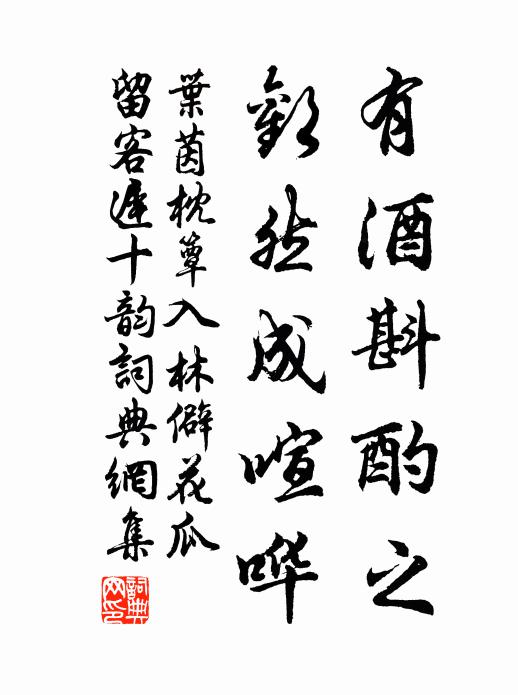 有酒斟酌之
歡然成喧哗
葉茵枕簟入林僻茶瓜
留客遲十韵詞典網集
詞典网印